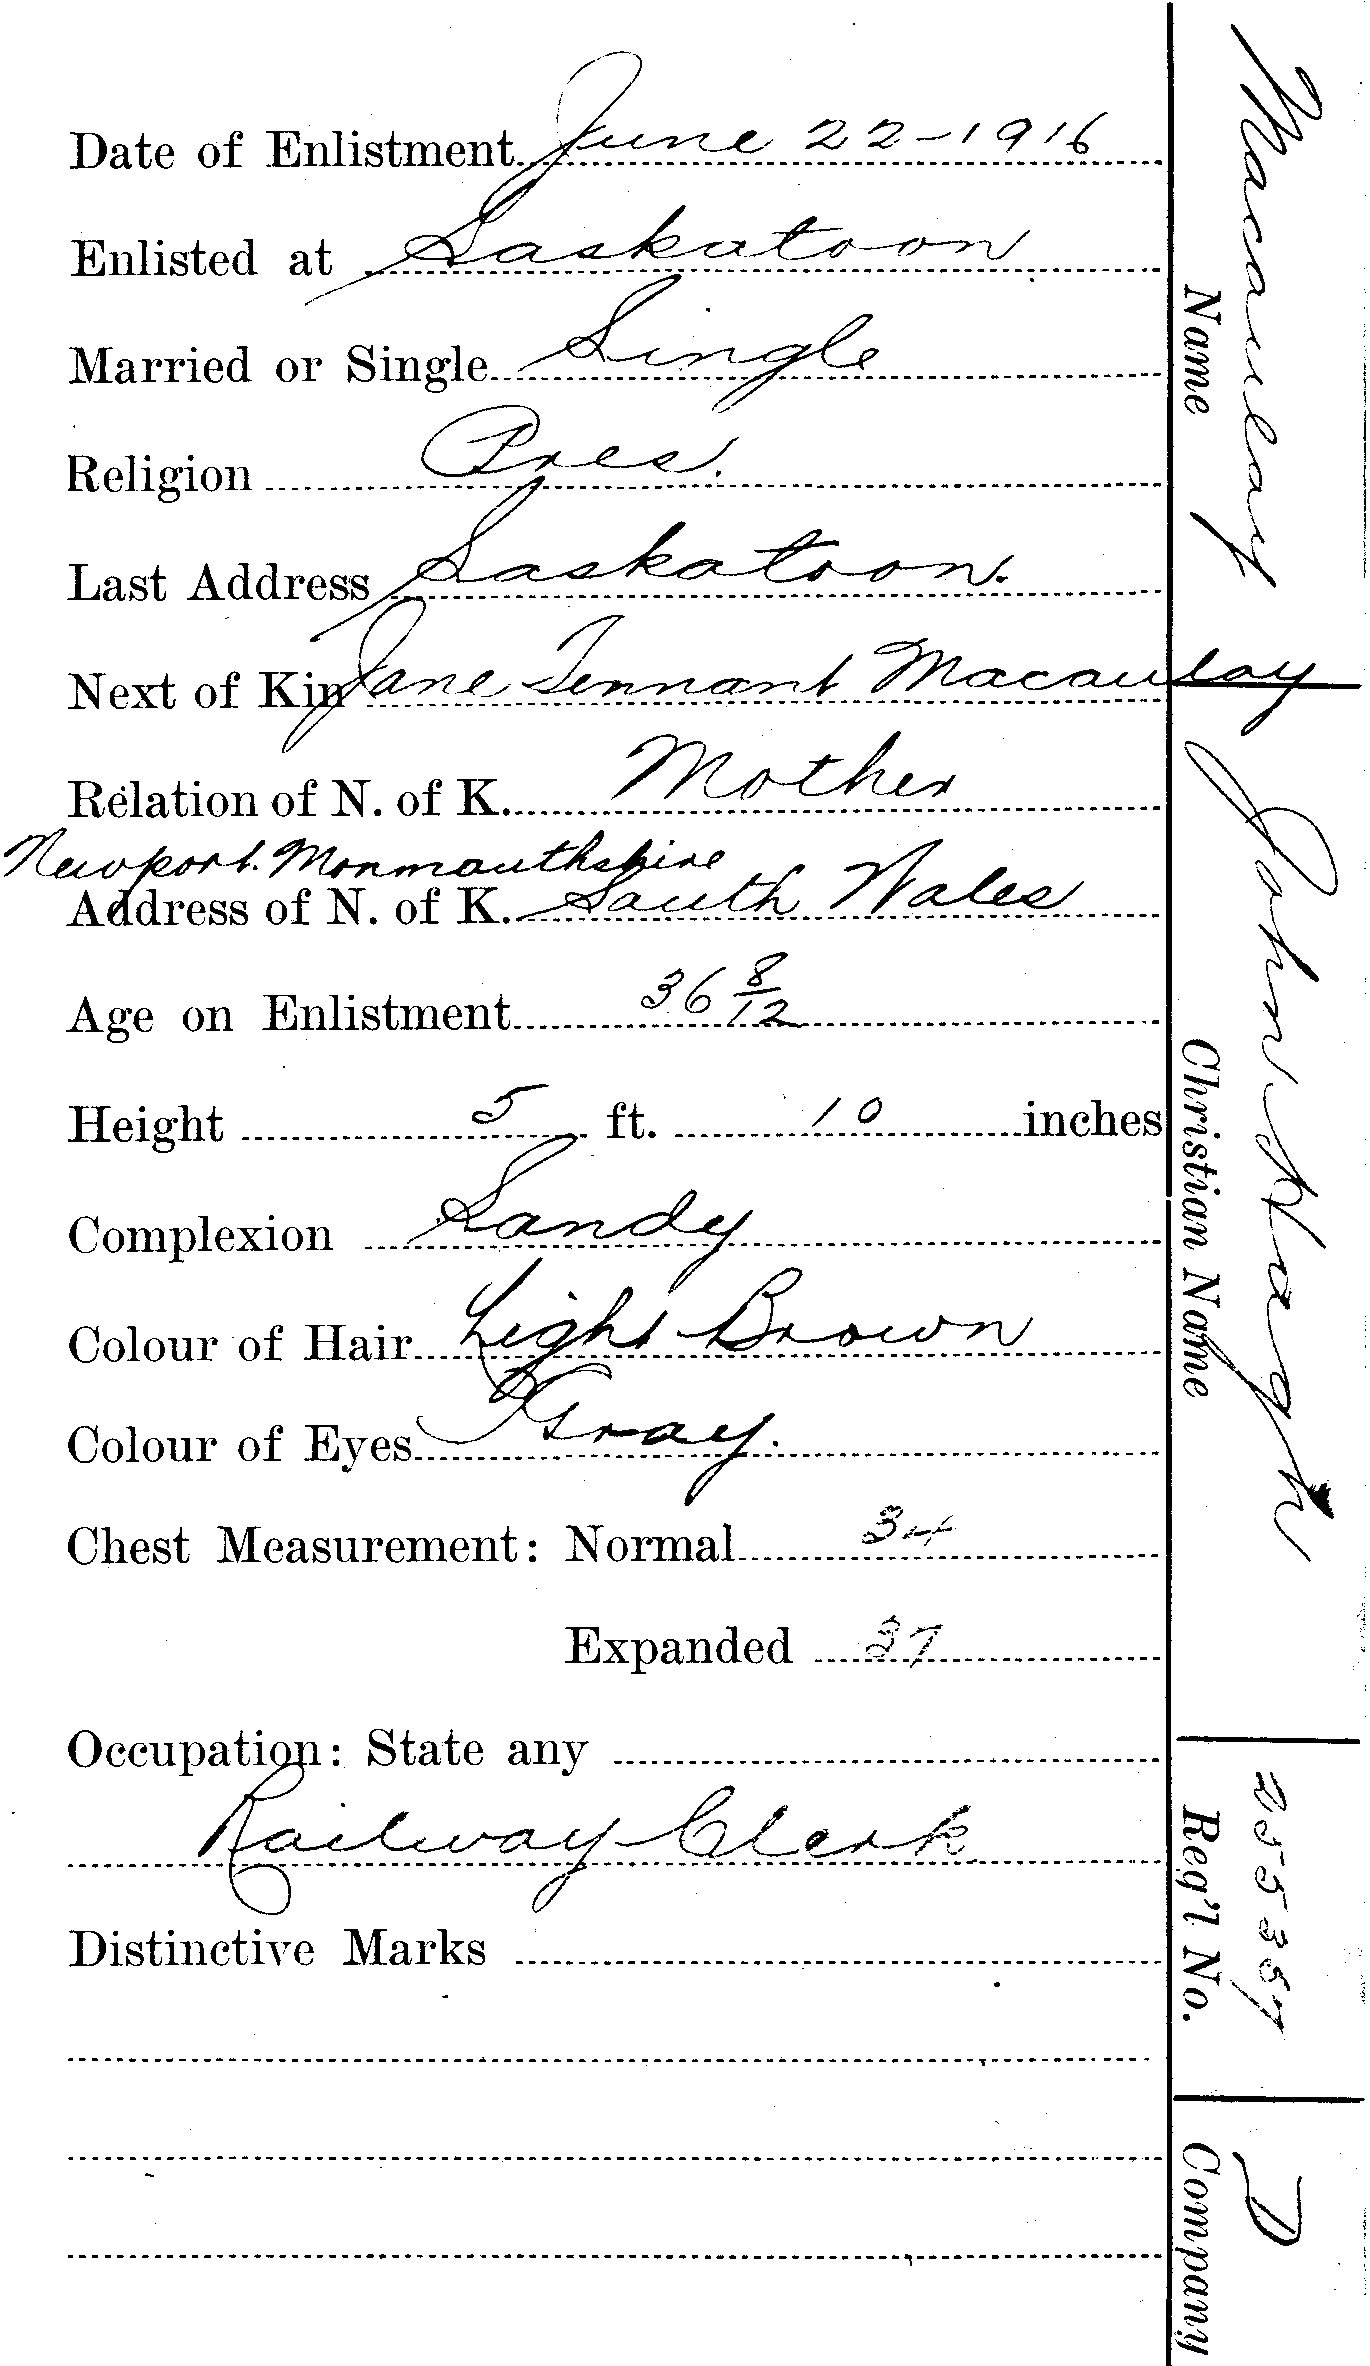 Date of Enlistment June 22-1916
Enlisted at Saskatoon
Married or Single Single
Religion Pres.
Last Address Saskatoon.
Next of Kin Jane Tennant Macaulay
Relation of N. of K. Mother
Newport. Monmouthshire
Address of N. of K. South Wales
Age on Enlistment 36 8/12
Height 5 ft. 10 inches
Complexion Sandy
Colour of Hair Light Brown
Colour of Eyes Gray.
Chest Measurement: Normal 34
Expanded 37
Occupation: State any
Railway Clerk
Distinctive Marks
Macaulay
Name
John
Christian Name
255357
Reg'l No.
D
Company